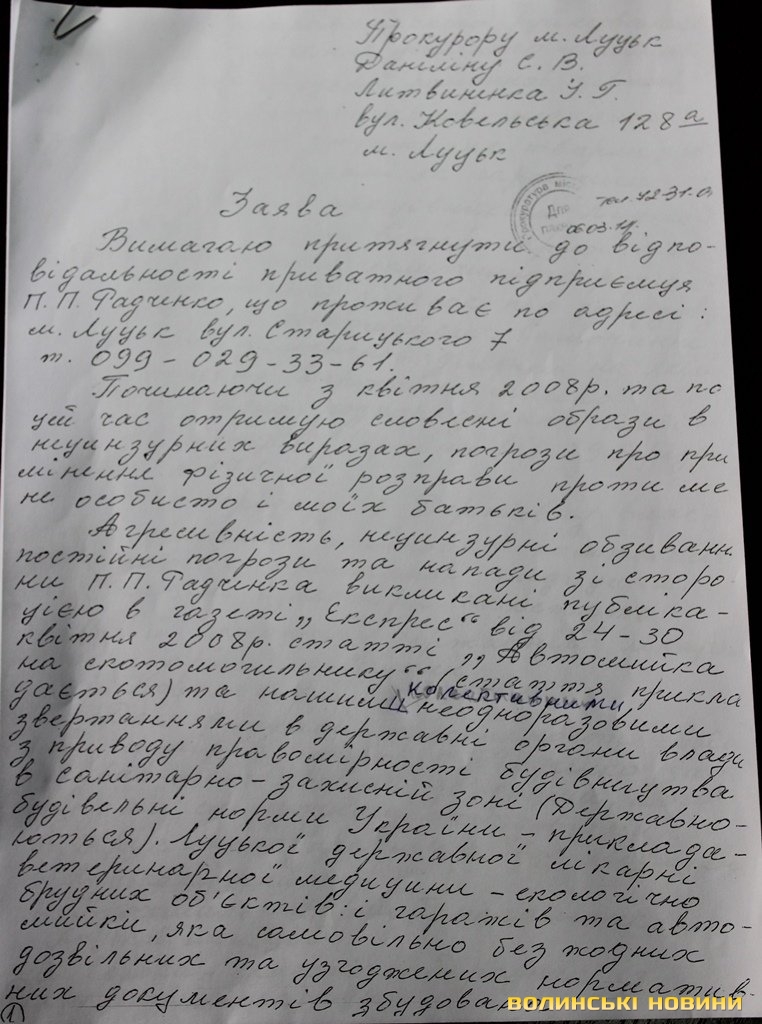 Прокурору м. Луцьк
Даніліну Є. В.
Литвиненка І. Г.
вул. Ковельська 128 а
м. Луцьк
Заява
тел. 72-31-
06.03.
Вимагаю притягнути до відпо-
відальності приватного підприємця
П. П. Гадченко, що проживає по адресі:
м. Луцьк вул. Старицького 7
т. 099-029-33-61.
Починаючи з квітня 2008р. та по
цей час отримую словесні образи в
нецинзурних виразах, погрози про при
мінення фізичної розправи проти ме
не особисто і моїх батьків.
Агресивність, нецинзурні обзиванн
постійні погрози та напади зі сторо
ни П. П. Гадченка викликані публіка-
цією в газеті „Експрес“ від 24-30
квітня 2008р. статті „Автомийка
на скотомогильнику“ (стаття прикла
дається) та нашими колективними, неодноразовими
звертаннями в державні органи влади
з приводу правомірності будівництва
в санітарно-захисній зоні (Державно-
будівельні норми України - приклада-
ються). Луцької державної лікарні
ветеринарної медицини - екологічно
брудних об'єктів: і гаражів та авто-
мийки, яка самовільно без жодних
дозвільних та узгоджених норматив
них документів збудована
1
ВОЛИНСЬКІ НОВИНИ